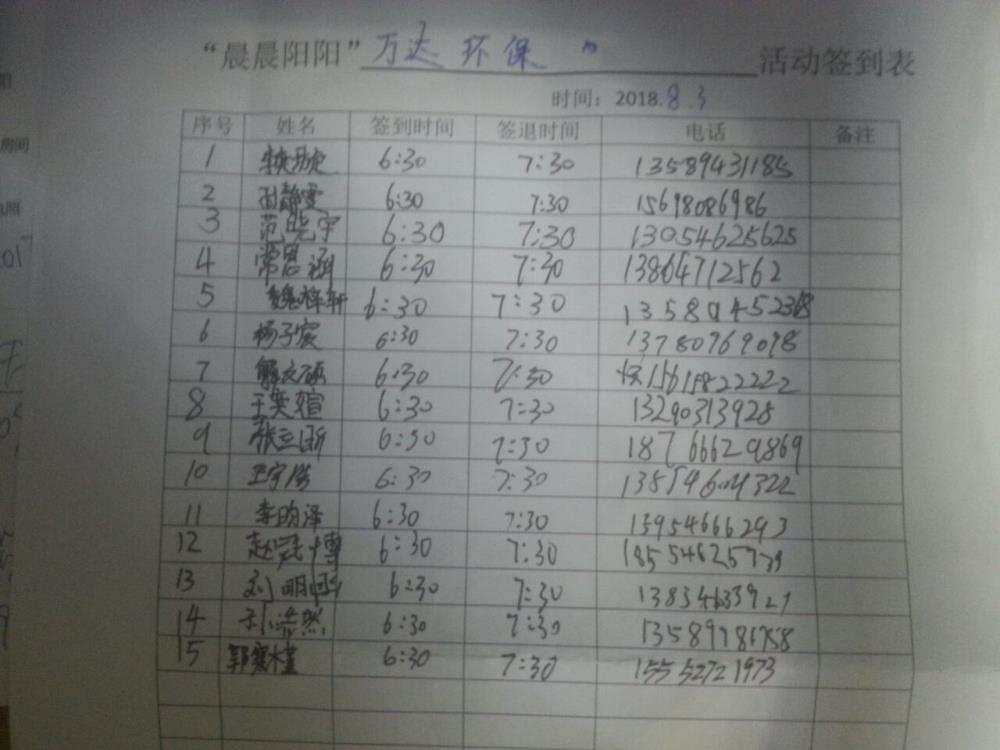 “晨晨阳阳” 万达环保 " 活动签到表
时间：2018.8.3
序号 姓名 签到时间 签退时间 电话 备注
1 6:30 7:30 13589431185
2 孙静雯 6:30 7:30 15698086986
3 范晓宇 6:30 7:30 13054625625
4 常恩涵 6:30 7:30 13864712562
5 魏梓轩 6:30 7:30
6 杨子宸 6:30 7:30 13780769098
7 解文硕 6:30 7:30
8 王奕萱 6:30 7:30 13290313928
9 6:30 7:30 18766629869
10 王宇浩 6:30 7:30
11 李昀泽 6:30 7:30 13954666293
12 赵冠博 6:30 7:30
13 刘明函 6:30 7:30
14 孙浩然 6:30 7:30 13589981758
15 郭赛楠 6:30 7:30 15552721973